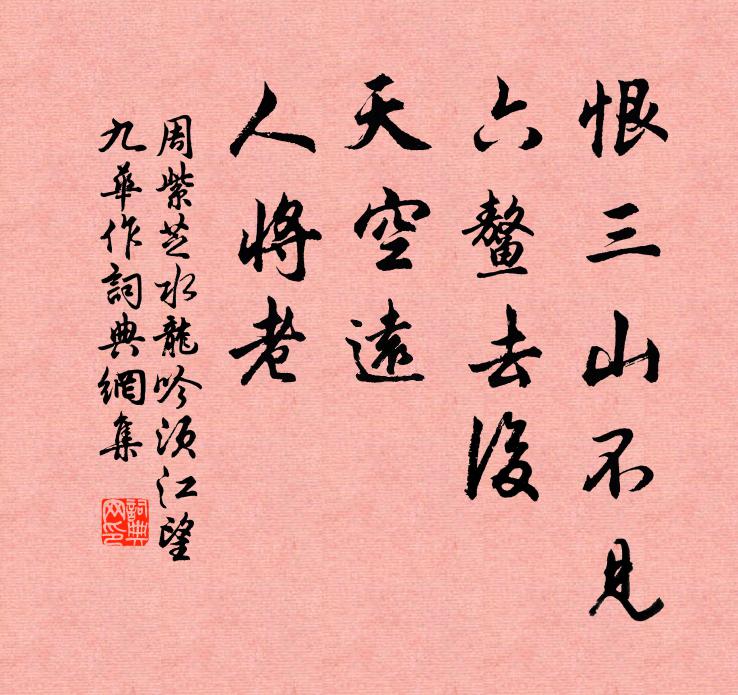 恨三山不見
六鰲去後
天空遠
人將老
周紫芝水龍吟須江望
九華作詞典網集
詞典
网印